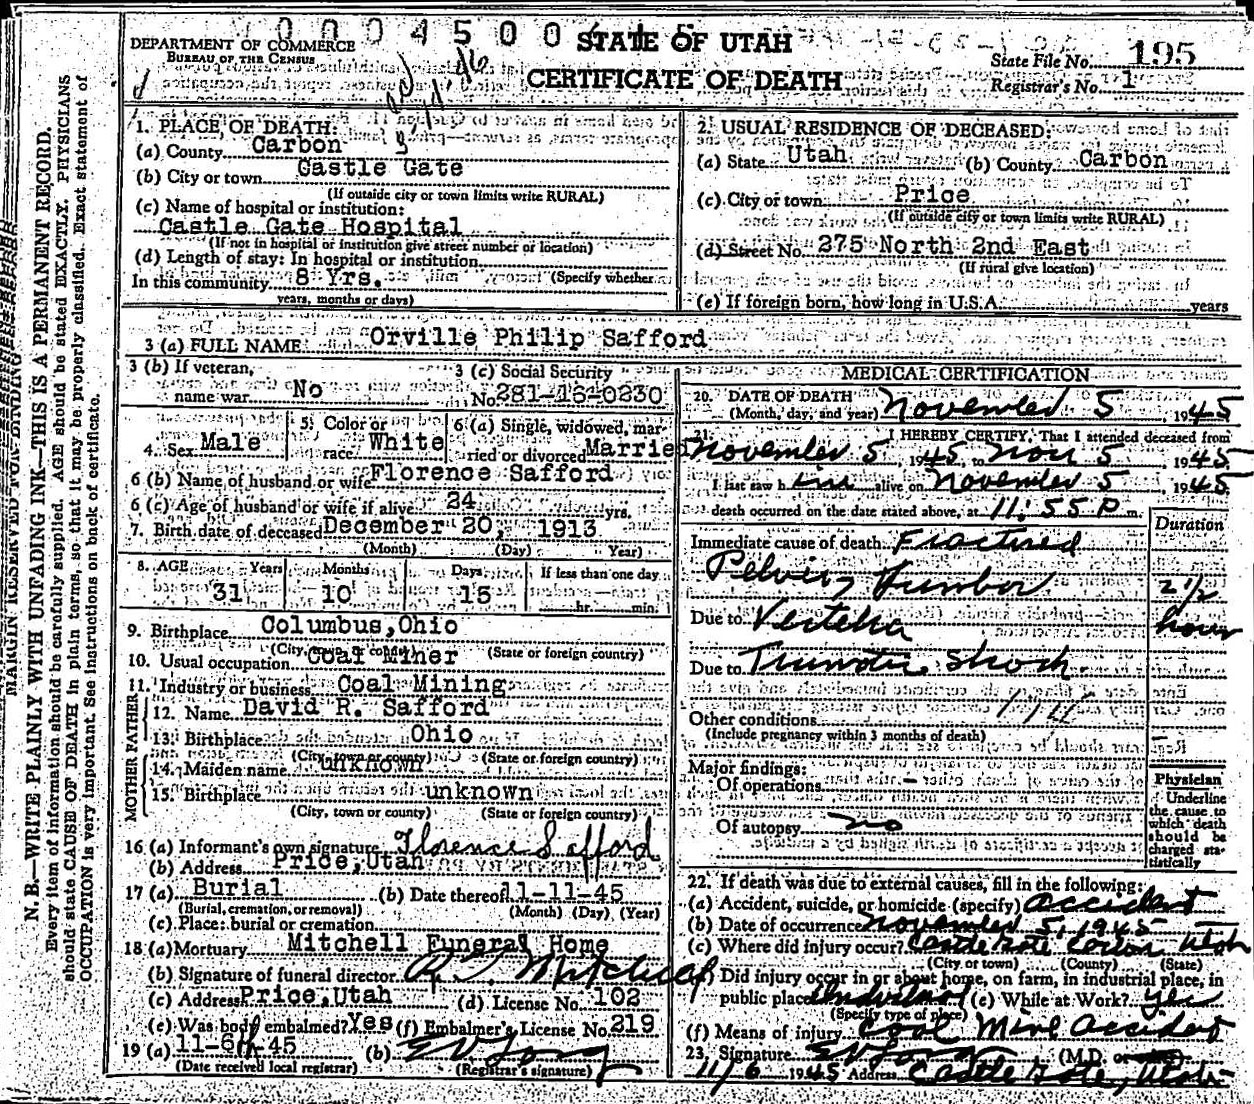 0004500
STATE OF UTAH
DEPARTMENT OF COMMERCE
BUREAU OF THE CENSUS
CERTIFICATE OF DEATH
State File No. 195
Registrar's No. 1
MARGIN RESERVED FOR BINDING
N. B.—WRITE PLAINLY WITH UNFADING INK—THIS IS A PERMANENT RECORD.
Every item of information should be carefully supplied. AGE should be stated EXACTLY. PHYSICIANS
should state CAUSE OF DEATH in plain terms, so that it may be properly classified. Exact statement of
OCCUPATION is very important. See instructions on back of certificate.
1. PLACE OF DEATH:
(a) County Carbon
(b) City or town Castle Gate
(If outside city or town limits write RURAL)
(c) Name of hospital or institution:
Castle Gate Hospital
(If not in hospital or institution give street number or location)
(d) Length of stay: In hospital or institution
In this community 8 Yrs. (Specify whether
years, months or days)
2. USUAL RESIDENCE OF DECEASED:
(a) State Utah (b) County Carbon
(c) City or town Price
(If outside city or town limits write RURAL)
(d) Street No. 275 North 2nd East
(If rural give location)
(e) If foreign born, how long in U.S.A. years
3 (a) FULL NAME Orville Philip Safford
3 (b) If veteran,
name war No
3 (c) Social Security
No. 281-16-0230
4. Sex Male
5. Color or
race White
6 (a) Single, widowed, mar-
ried or divorced Married
6 (b) Name of husband or wife Florence Safford
6 (c) Age of husband or wife if alive 24 yrs.
7. Birth date of deceased December 20, 1913
(Month) (Day) Year)
8. AGE Years Months Days If less than one day
31 10 15 hr. min.
9. Birthplace Columbus, Ohio
(City, town or county) (State or foreign country)
10. Usual occupation Coal Miner
11. Industry or business Coal Mining
FATHER
12. Name David R. Safford
13. Birthplace Ohio
(City, town or county) (State or foreign country)
MOTHER
14. Maiden name unknown
15. Birthplace unknown
(City, town or county) (State or foreign country)
16 (a) Informant's own signature Florence Safford
(b) Address Price, Utah
17 (a) Burial (b) Date thereof 11-11-45
(Burial, cremation, or removal) (Month) (Day) (Year)
(c) Place: burial or cremation
18 (a) Mortuary Mitchell Funeral Home
(b) Signature of funeral director Mitchell
(c) Address Price, Utah (d) License No. 102
(e) Was body embalmed? Yes (f) Embalmer's License No. 219
19 (a) 11-6-45 (b) E V Long
(Date received local registrar) (Registrar's signature)
MEDICAL CERTIFICATION
20. DATE OF DEATH
(Month, day, and year) November 5, 1945
21. I HEREBY CERTIFY, That I attended deceased from
November 5, 1945, to Nov 5, 1945
I last saw him alive on November 5 1945
death occurred on the date stated above, at 11:55 P m.
Duration
Immediate cause of death Fractured
Pelvis, Lumbar 2 1/2
Due to Vertebra hours
Due to Traumatic Shock
Other conditions
(Include pregnancy within 3 months of death)
Major findings:
Of operations -
Of autopsy no
Physician
Underline
the cause to
which death
should be
charged sta-
tistically
22. If death was due to external causes, fill in the following:
(a) Accident, suicide, or homicide (specify) Accident
(b) Date of occurrence November 5, 1945
(c) Where did injury occur? Castle Gate Carbon Utah
(City or town) (County) (State)
Did injury occur in or about home, on farm, in industrial place, in
public place Industrial (e) While at Work? yes
(Specify type of place)
(f) Means of injury Coal Mine Accident
23. Signature E V Long (M.D. or
11/6 1945 Address Castle Gate, Utah